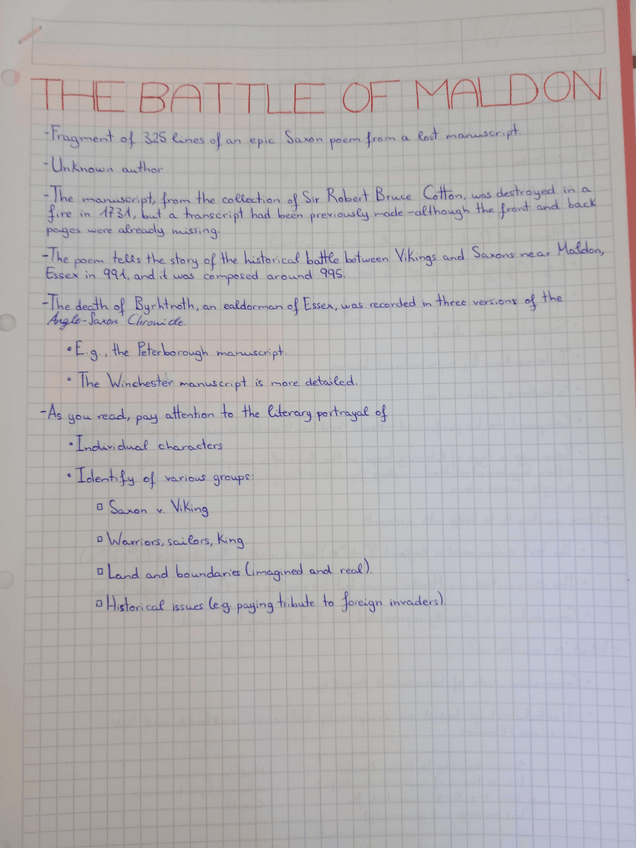 THE BATTLE OF MALDON
-Fragment of 325 lines of an epic Saxon poem from a lost manuscript.
-Unknown author
-The manuscript, from the collection of Sir Robert Bruce Cotton, was destroyed in a
fire in 1731, but a transcript had been previously made -although the front and back
pages were already missing.
-The poem tells the story of the historical battle between Vikings and Saxons near Maldon,
Essex in 991, and it was composed around 995.
-The death of Byrhtnoth, an ealdorman of Essex, was recorded in three versions of the
Anglo-Saxon Chronicle
• E.g., the Peterborough manuscript.
• The Winchester manuscript is more detailed.
-As you read, pay attention to the literary portrayal of
• Individual characters
• Identify of various groups:
▫ Saxon v. Viking
▫ Warriors, sailors, King
▫ Land and boundaries (imagined and real).
▫ Historical issues (e.g. paying tribute to foreign invaders).